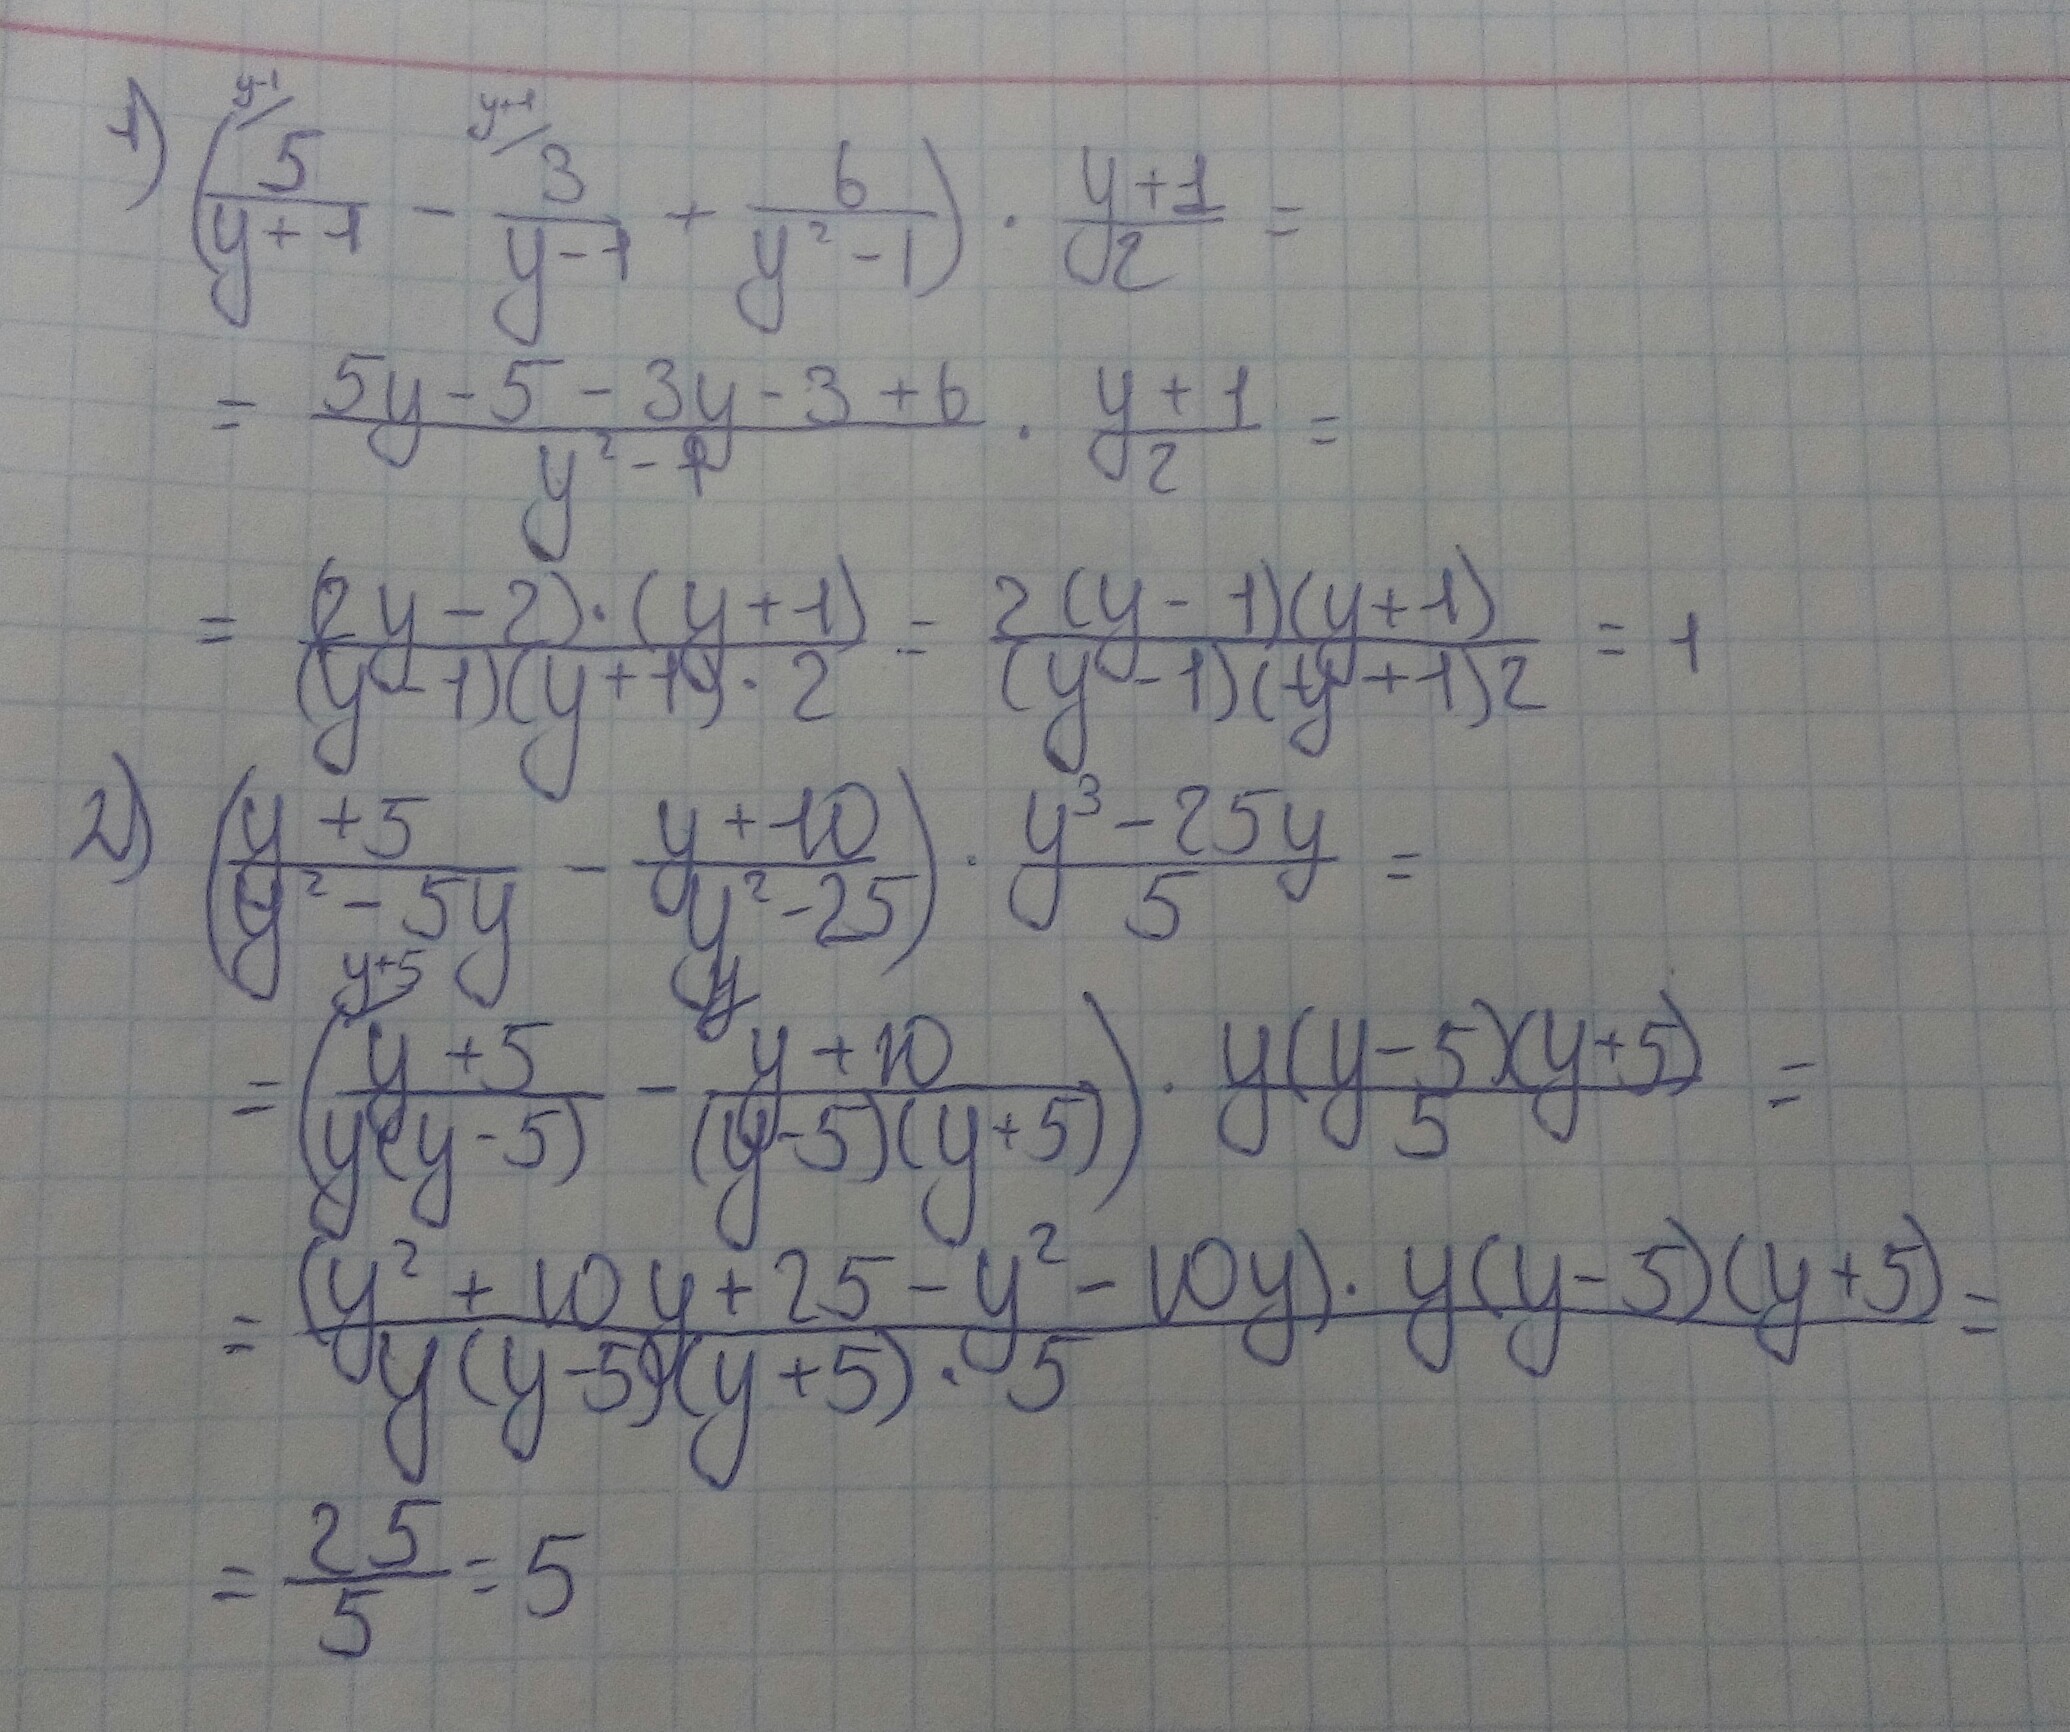 1) (y-1/ 5/(y+1) - y+1/ 3/(y-1) + 6/(y²-1)) · (y+1)/2 =
= (5y-5-3y-3+6)/(y²-1) · (y+1)/2 =
= ((2y-2)·(y+1))/((y-1)(y+1)·2) = (2(y-1)(y+1))/((y-1)(y+1)2) = 1
2) ((y+5)/(y²-5y) - (y+10)/(y²-25)) · (y³-25y)/5 =
= (y+5/ (y+5)/(y(y-5)) - y/ (y+10)/((y-5)(y+5))) · (y(y-5)(y+5))/5 =
= ((y²+10y+25-y²-10y)·y(y-5)(y+5))/(y(y-5)(y+5)·5) =
= 25/5 = 5